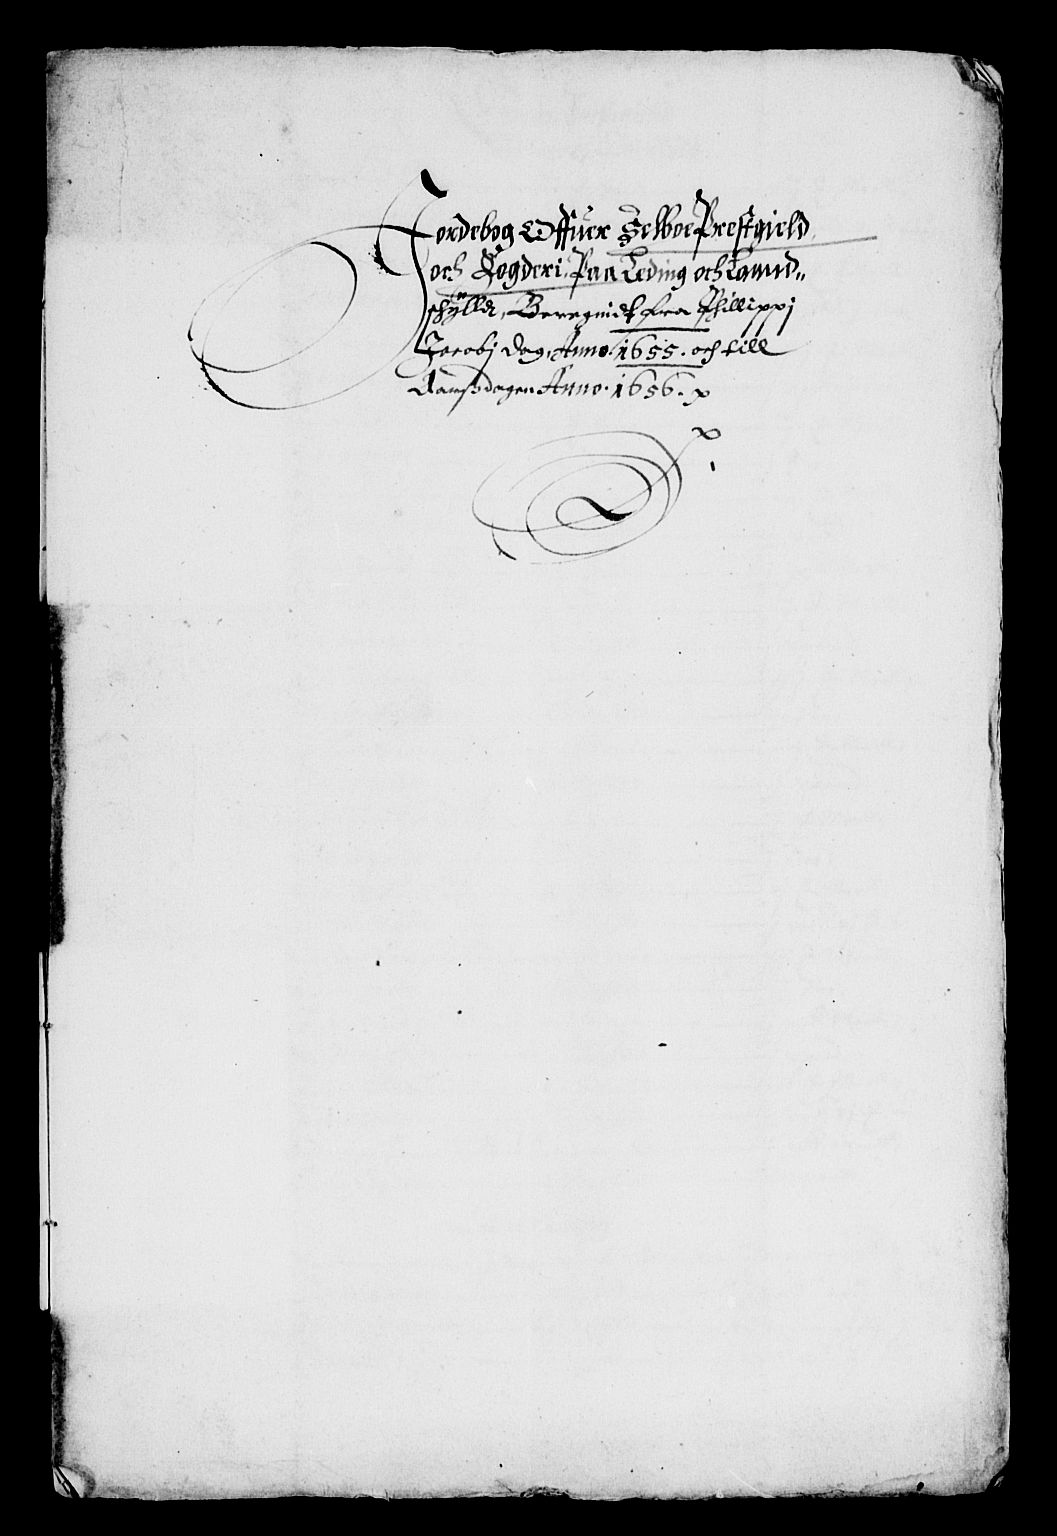 Jordebog Offuer Selboe Prestgield
och Fogderi, Paa Leding och Land„
schÿlld, Beregnidt fra Phillippj
Jacobj dag, Anno. 1655. och till
Aarsdagen Anno. 1656.